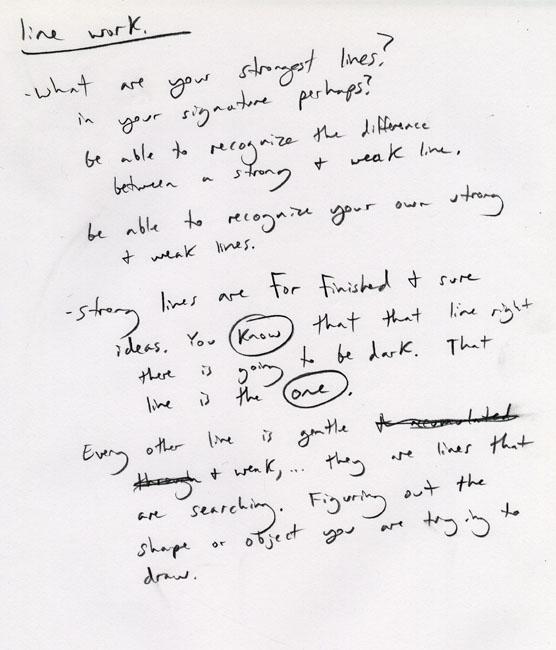 line work.
-what are your strongest lines?
in your signature perhaps?
be able to recognize the difference
between a strong + weak line.
be able to recognize your own strong
+ weak lines.
-strong lines are For Finished + sure
ideas. You know that that line right
there is going to be dark. That
line is the one.
Every other line is gentle
+ weak,... they are lines that
are searching. Figuring out the
shape or object you are trying to
draw.